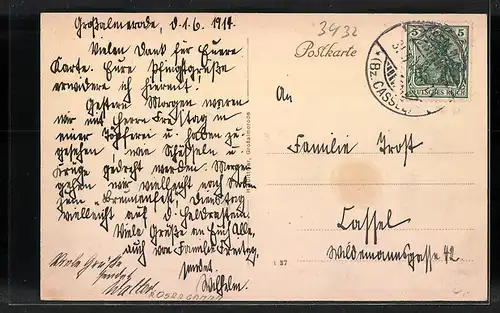 Großalmerode, d. 1. 6. 1914.
Vielen Dank für Euere
Karte. Eure Pfingstgrüße
erwidere ich hiermit.
Gestern Morgen waren
wir mit Herrn Freitag in
einer Töpferei u. haben zu
gesehen wie Schüsseln u.
Krüge gedreht werden. Morgen
gehen wir vielleicht nach
zum Dienstag
vielleicht auf d.
Viele Grüße an Euch Alle,
auch von Familie Freitag,
sendet
Wilhelm.
Viele Grüße
sendet
Walter
3432
Postkarte
5 5
DEUTSCHES REICH
(Bz. CASSEL)
An
Familie Trost
Cassel
Wildemannsgasse 42.
Großalmerode
1 37